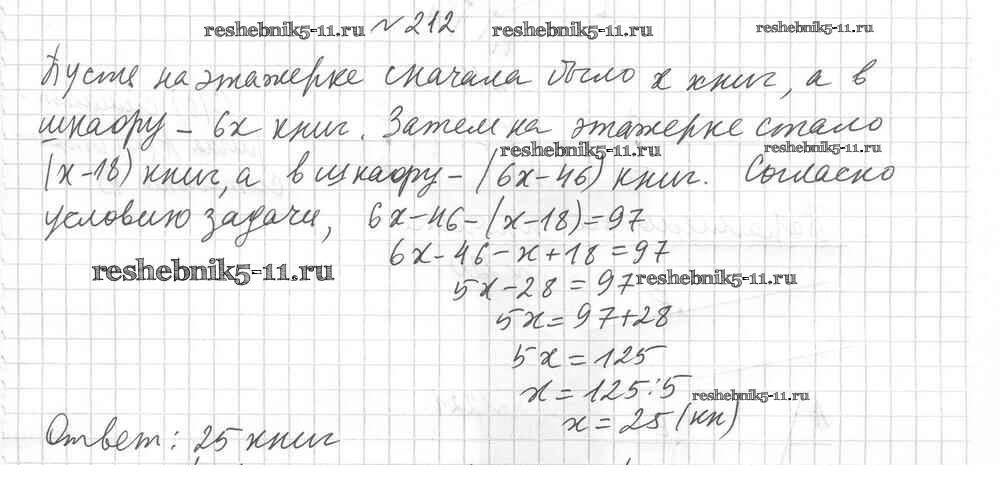 reshebnik5-11.ru № 212 reshebnik5-11.ru reshebnik5-11.ru
Пусть на этажерке сначала было x книг, а в
шкафу – 6x книг. Затем на этажерке стало
reshebnik5-11.ru reshebnik5-11.ru
(x-18) книг, а в шкафу – (6x-46) книг. Согласно
условию задачи, 6x-46-(x-18)=97
6x-46-x+18=97
reshebnik5-11.ru 5x-28=97 reshebnik5-11.ru
5x=97+28
5x=125
x=125:5 reshebnik5-11.ru
x=25 (кн)
Ответ: 25 книг